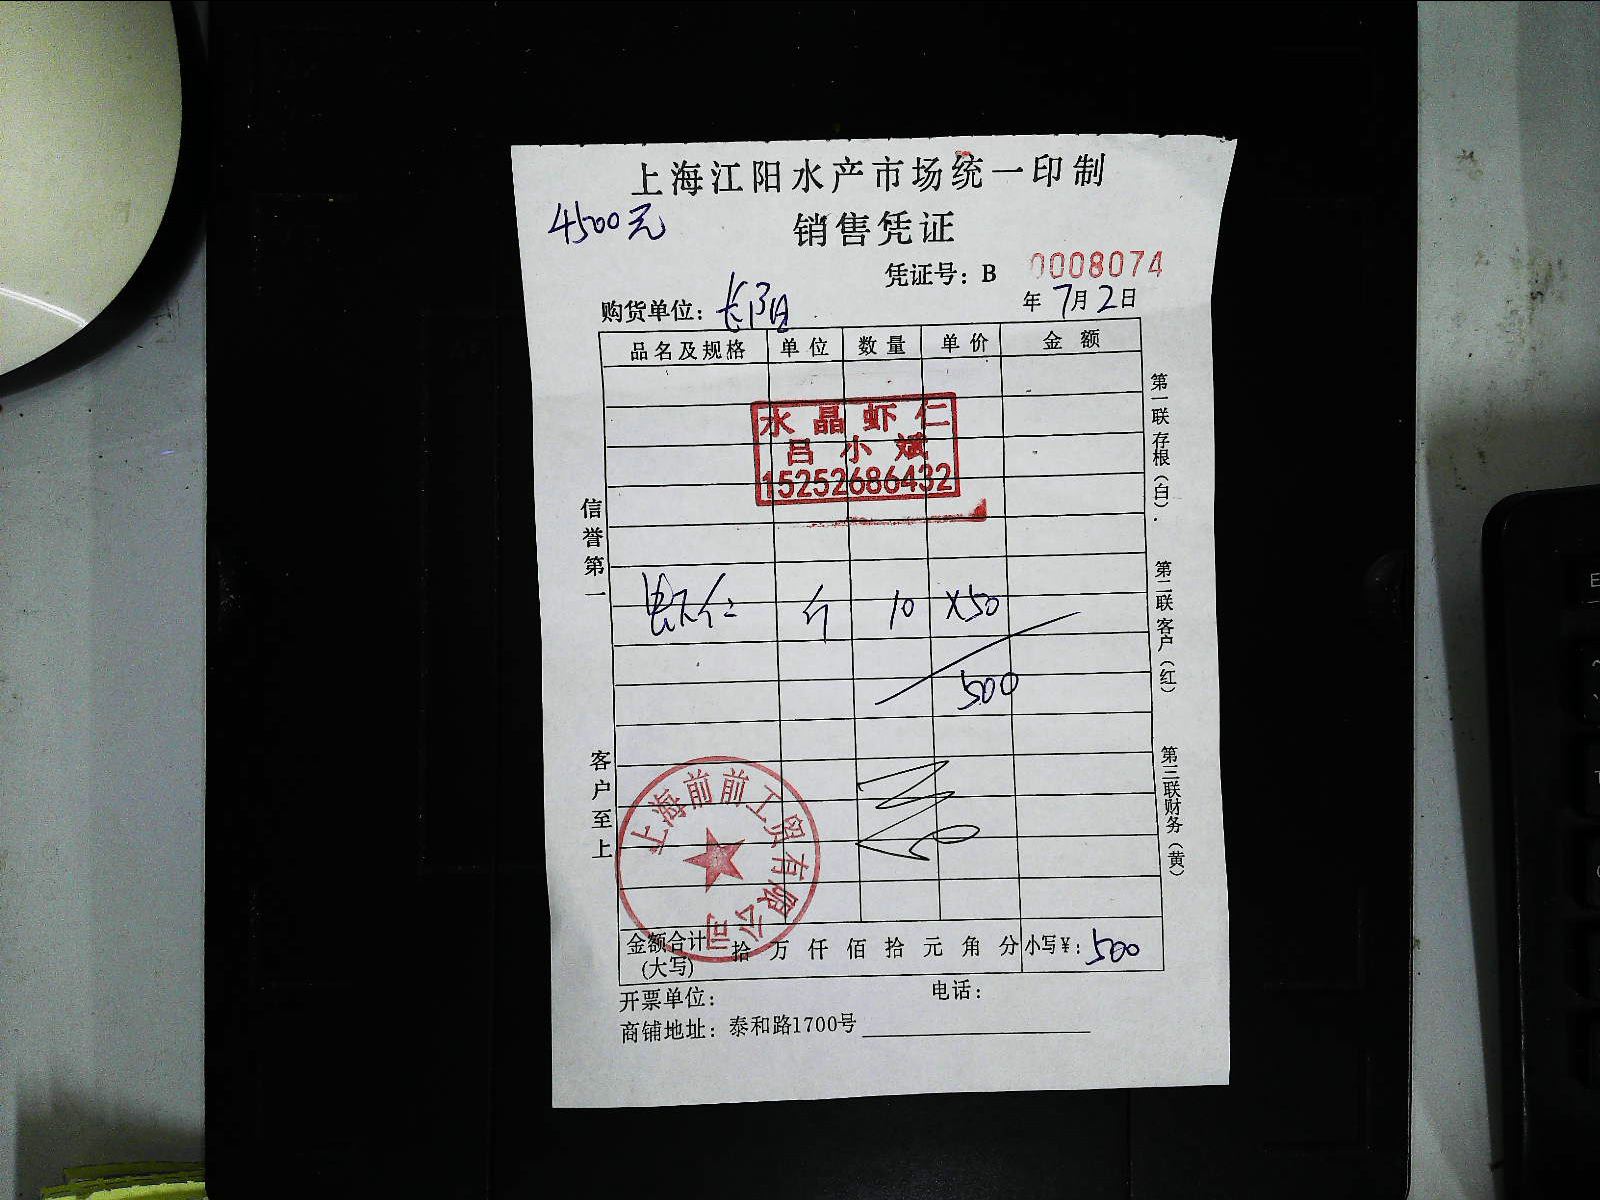 上海江阳水产市场统一印制
4500元
销售凭证
凭证号：B 0008074
购货单位：长阳
年7月2日
品名及规格 单位 数量 单价 金额
水晶虾仁
吕小斌
15252686432
虾仁 斤 10 ×50
500
信誉第一
客户至上
第一联存根（白）．
第二联客户（红）
第三联财务（黄）
上海前前工贸有限公司
金额合计（大写） 拾 万 仟 佰 拾 元 角 分 小写￥：500
开票单位： 电话：
商铺地址：泰和路1700号